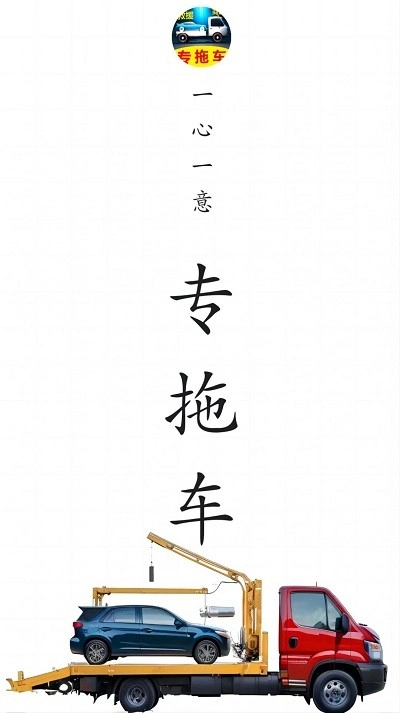 救援
专拖车
一心一意
专拖车